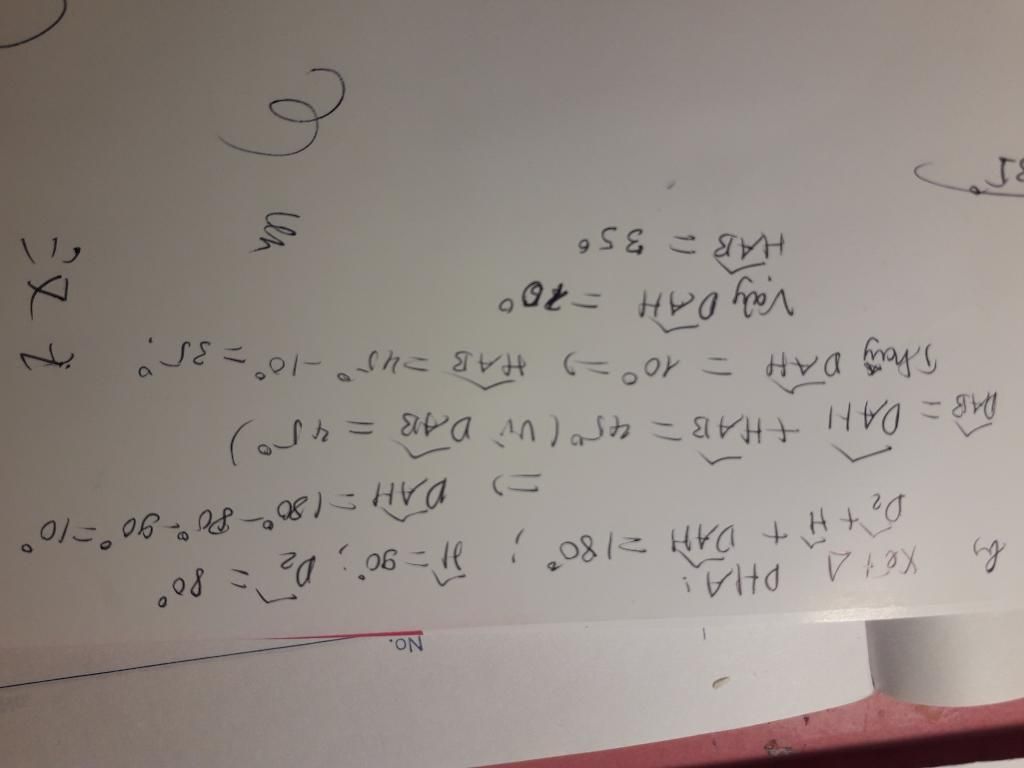 No.
b, Xét Δ DHA:
D̂₂ + Ĥ + DAH = 180° ; Ĥ = 90° ; D̂₂ = 80°
=> DAH = 180° - 80° - 90° = 10°
DAB = DAH + HAB = 45° (vì DAB = 45°)
Thay DAH = 10° => HAB = 45° - 10° = 35°.
Vậy DAH = 10°
HAB = 35°
35°